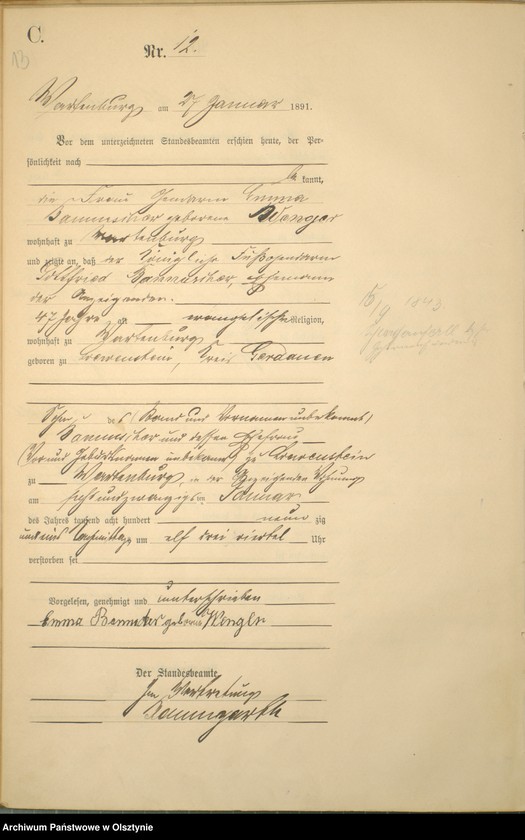 C.
13
Nr. 12.
Wartenburg am 27 Januar 1891.
Vor dem unterzeichneten Standesbeamten erschien heute, der Per-
sönlichkeit nach
be kannt,
die Frau Gendarm Emma
geborene
wohnhaft zu Wartenburg
und zeigte an, daß der Königliche Fußgendarm
Gottfried Ehemann
der Anzeigenden.
47 Jahre alt evangelischer Religion,
wohnhaft zu Wartenburg
geboren zu Loewenstein, Kreis Gerdauen
Sohn des (Stand und Vornamen unbekannt)
und dessen Ehefrau
(Vor und Geburtsnamen unbekannt) zu Loewenstein
zu Wartenburg, in der Anzeigenden Wohnung
am sechsundzwanzigsten Januar
des Jahres tausend acht hundert neun zig
und eins mittags um elf drei viertel Uhr
verstorben sei
Vorgelesen, genehmigt und unterschrieben
Emma geborne
Der Standesbeamte
In Vertretung
Baumgarth
15/9 1843
Archiwum Państwowe w Olsztynie
AGAD